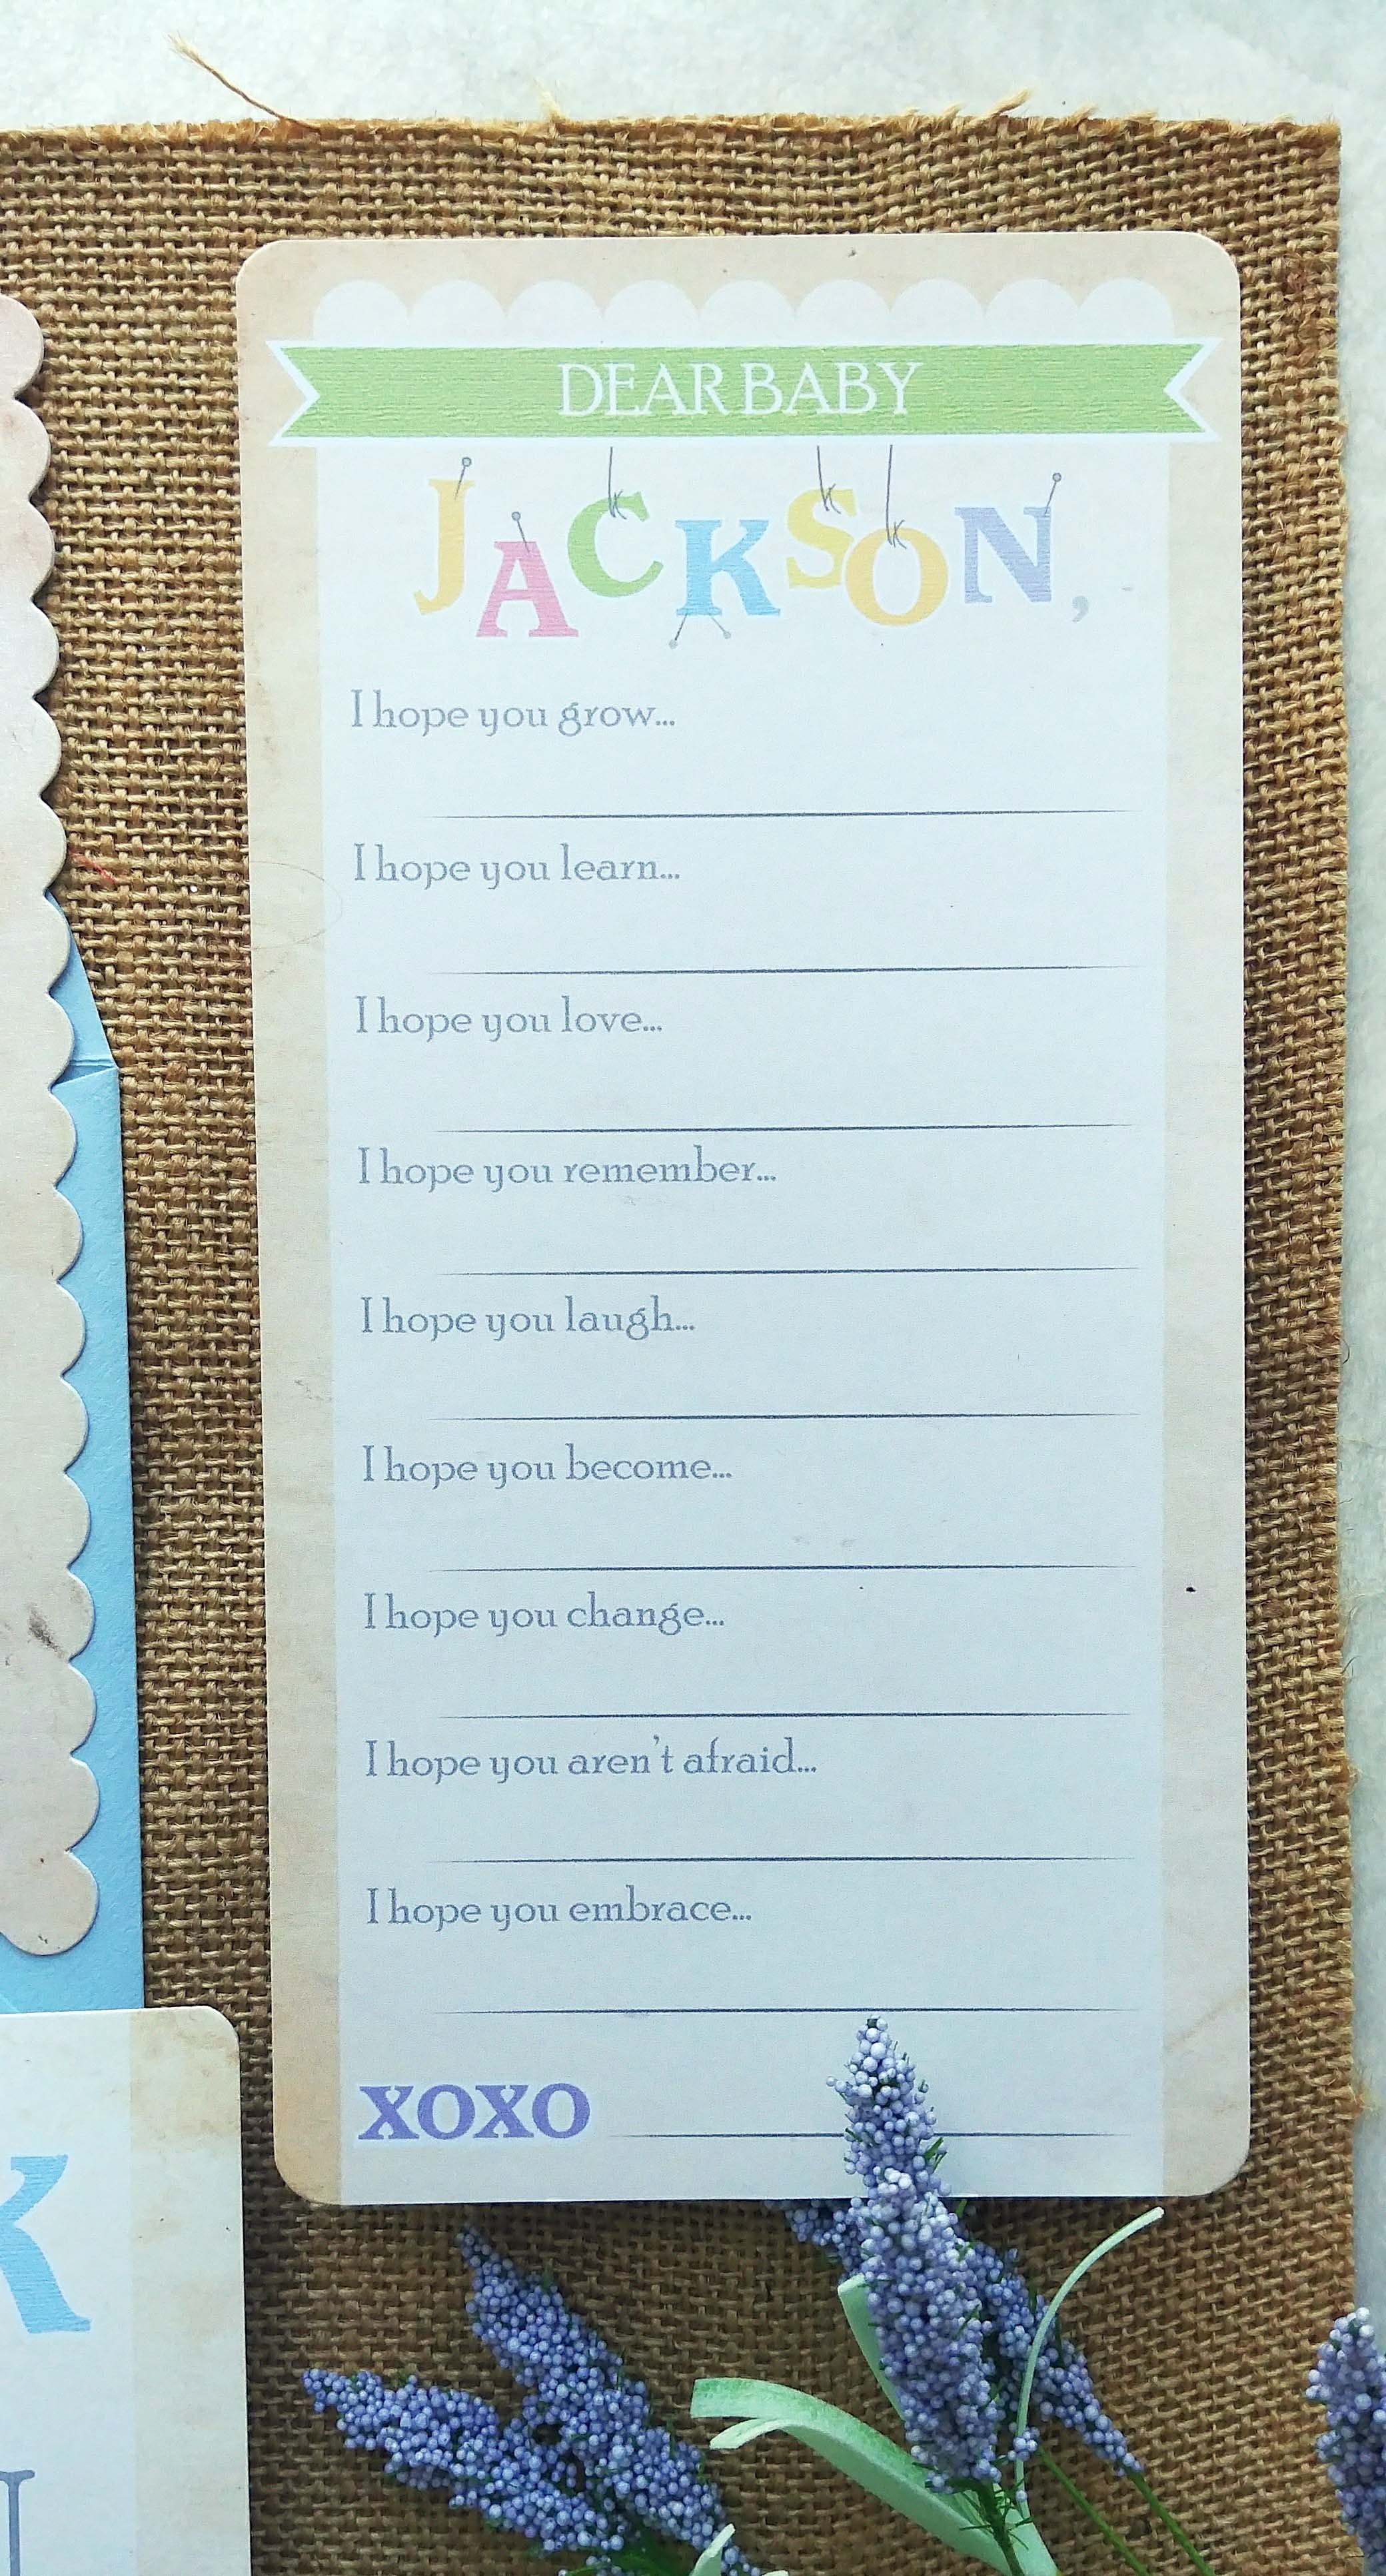 DEAR BABY
JACKSON,
I hope you grow...
I hope you learn...
I hope you love...
I hope you remember...
I hope you laugh...
I hope you become...
I hope you change...
I hope you aren't afraid...
I hope you embrace...
XOXO